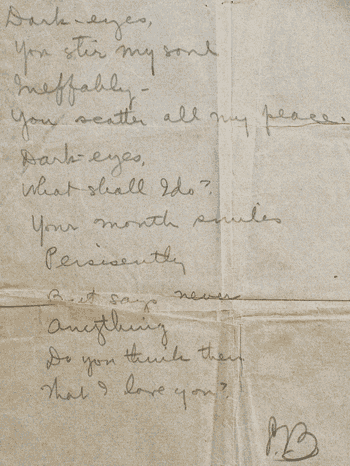 Dark-eyes,
You stir my soul
Ineffably-
You scatter all my peace.
Dark-eyes,
What shall I do?
Your mouth smiles
Persisently
But says never
Anything
Do you think then
That I love you?
P.B